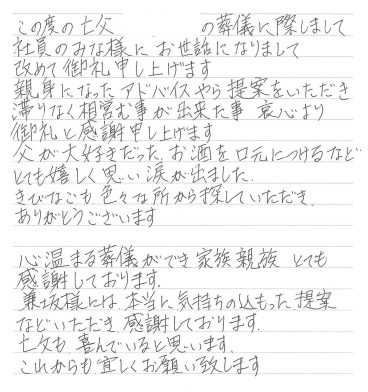 この度の亡父 の葬儀に際しまして
社員のみな様に お世話になりまして
改めて御礼申し上げます
親身になったアドバイスやら提案をいただき
滞りなく相営む事が出来た事 哀心より
御礼と感謝申し上げます
父が大好きだった、お酒を口元につけるなど
とても嬉しく思い涙が出ました。
きびなごも色々な所から探していただき、
ありがとうございます
心温まる葬儀ができ家族親族 とても
感謝しております。
兼坂様には、本当に気持ちの込もった提案
などいただき、感謝しております。
亡父も喜んでいると思います。
これからも宜しくお願い致します